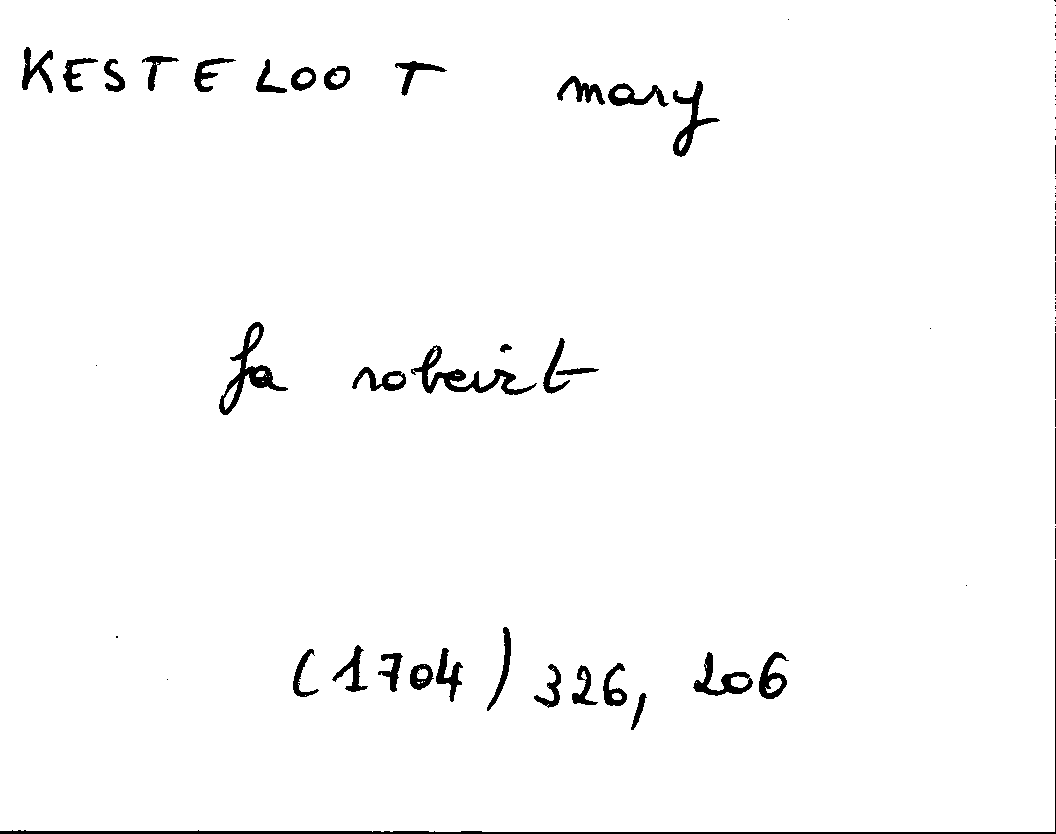 KESTELOOT mary
fa robeirt
(1704) 326, 206